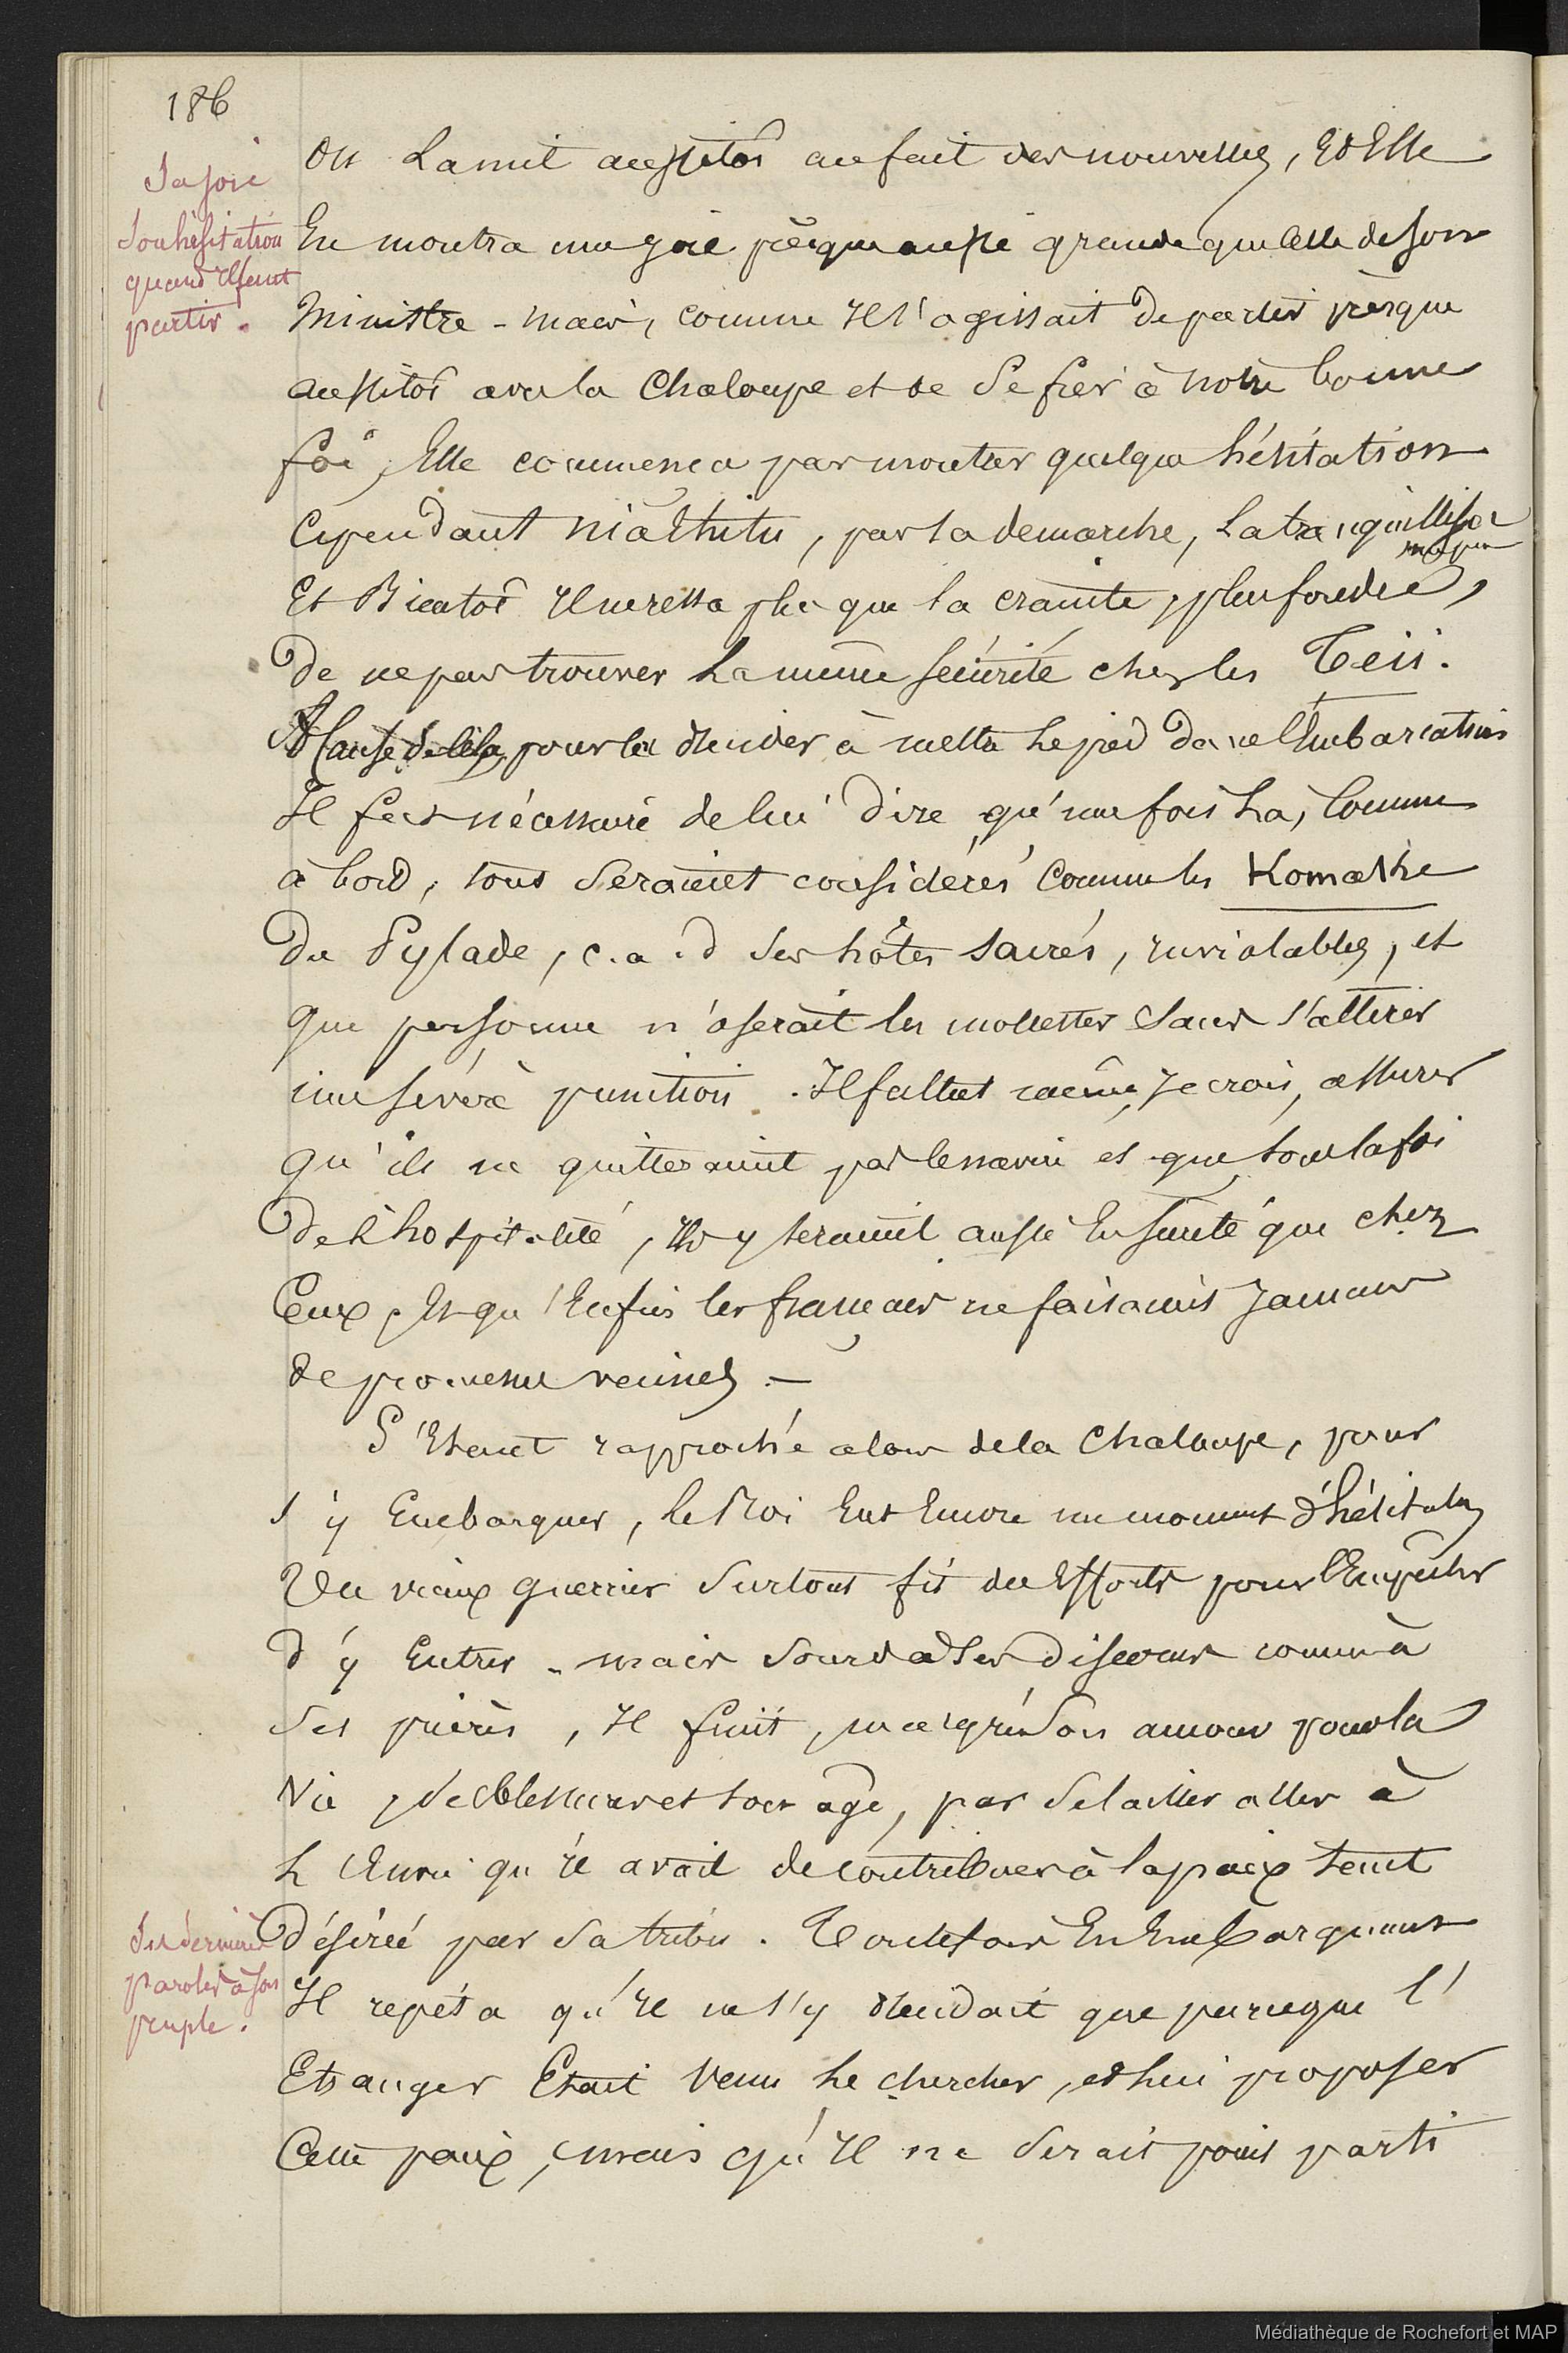 186
Sa joie
Son hésitation
quand Il faut
partir.
On La mit aussitôt au fait des nouvelles, Et Elle
En montra une joie presque aussi grande que Celle de son
Ministre - mais, comme Il s'agissait de partir presque
aussitôt avec la Chaloupe et de Se fier à notre bonne
foi, Elle commenca par montrer quelque hésitation
Cependant niathitu, par sa demarche, La tranquillisa
un peu
Et Bientot Il ne resta plus que la crainte, plus fondée,
de ne pas trouver La même sécurité chez les Teii.
A Cause de cela, pour la décider à mettre le pied dans l'Embarcation
Il fut nécessaire de lui dire qu'une fois Là, Comme
à bord, tous Seraient considérés Comme les Komathe
Du Pylade, c.a.d des hôtes sacrés, inviolables, et
que personne n'oserait les molester Sans s'attirer
une sévère punition. Il fallut même, Je crois, assurer
qu'ils ne quitteraient pas le navire et que sous la foi
De l'hospitalité, Ils y seraient aussi En sureté que chez
Eux, Et qu'Enfin les francais ne faisaient Jamais
de promesses vaines. -
S'Etant rapproché alors de la Chaloupe, pour
s'y Embarquer, le Roi Eut Encore un moment d'hésitation
Un vieux guerrier Surtout fit des Efforts pour l'Empêcher
d'y Entrer - mais Sourd à Ses discours comme à
Ses prières, Il finit, malgré Son amour pour la
Vie, Ses blessures et Son age, par Se laisser aller à
L'Envie qu'il avait de contribuer à la paix tant
Désirée par Sa tribu. Toutefois En Embarquant
Ses dernières
paroles à son
peuple.
Il repéta qu'Il ne s'y décidait que parceque l'
Etranger Etait Venu Le chercher, et Lui proposer
Cette paix, mais qu'Il ne Serait point parti
Médiathèque de Rochefort et MAP